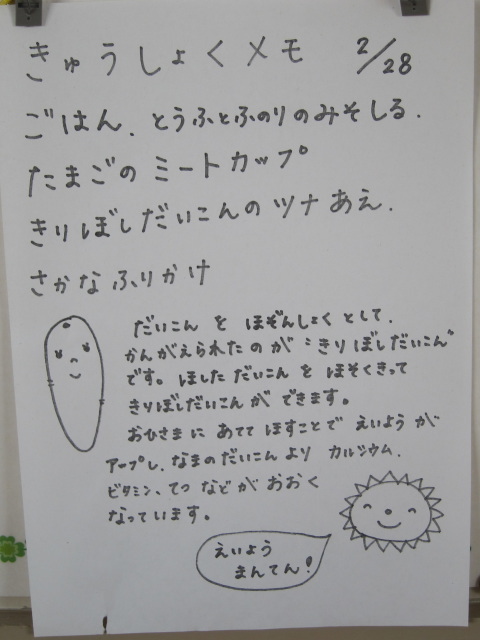 きゅうしょくメモ 2/28
ごはん. とうふとふのりのみそしる.
たまごのミートカップ
きりぼしだいこんのツナあえ.
さかなふりかけ
だいこんをほぞんしょくとして.
かんがえられたのが“きりぼしだいこん”
です。ほしただいこんをほそくきって
きりぼしだいこんができます。
おひさまにあててほすことでえいようが
アープし、なまのだいこんよりカルシウム.
ビタミン、てつなどがおおく
なっています。
えいよう
まんてん!